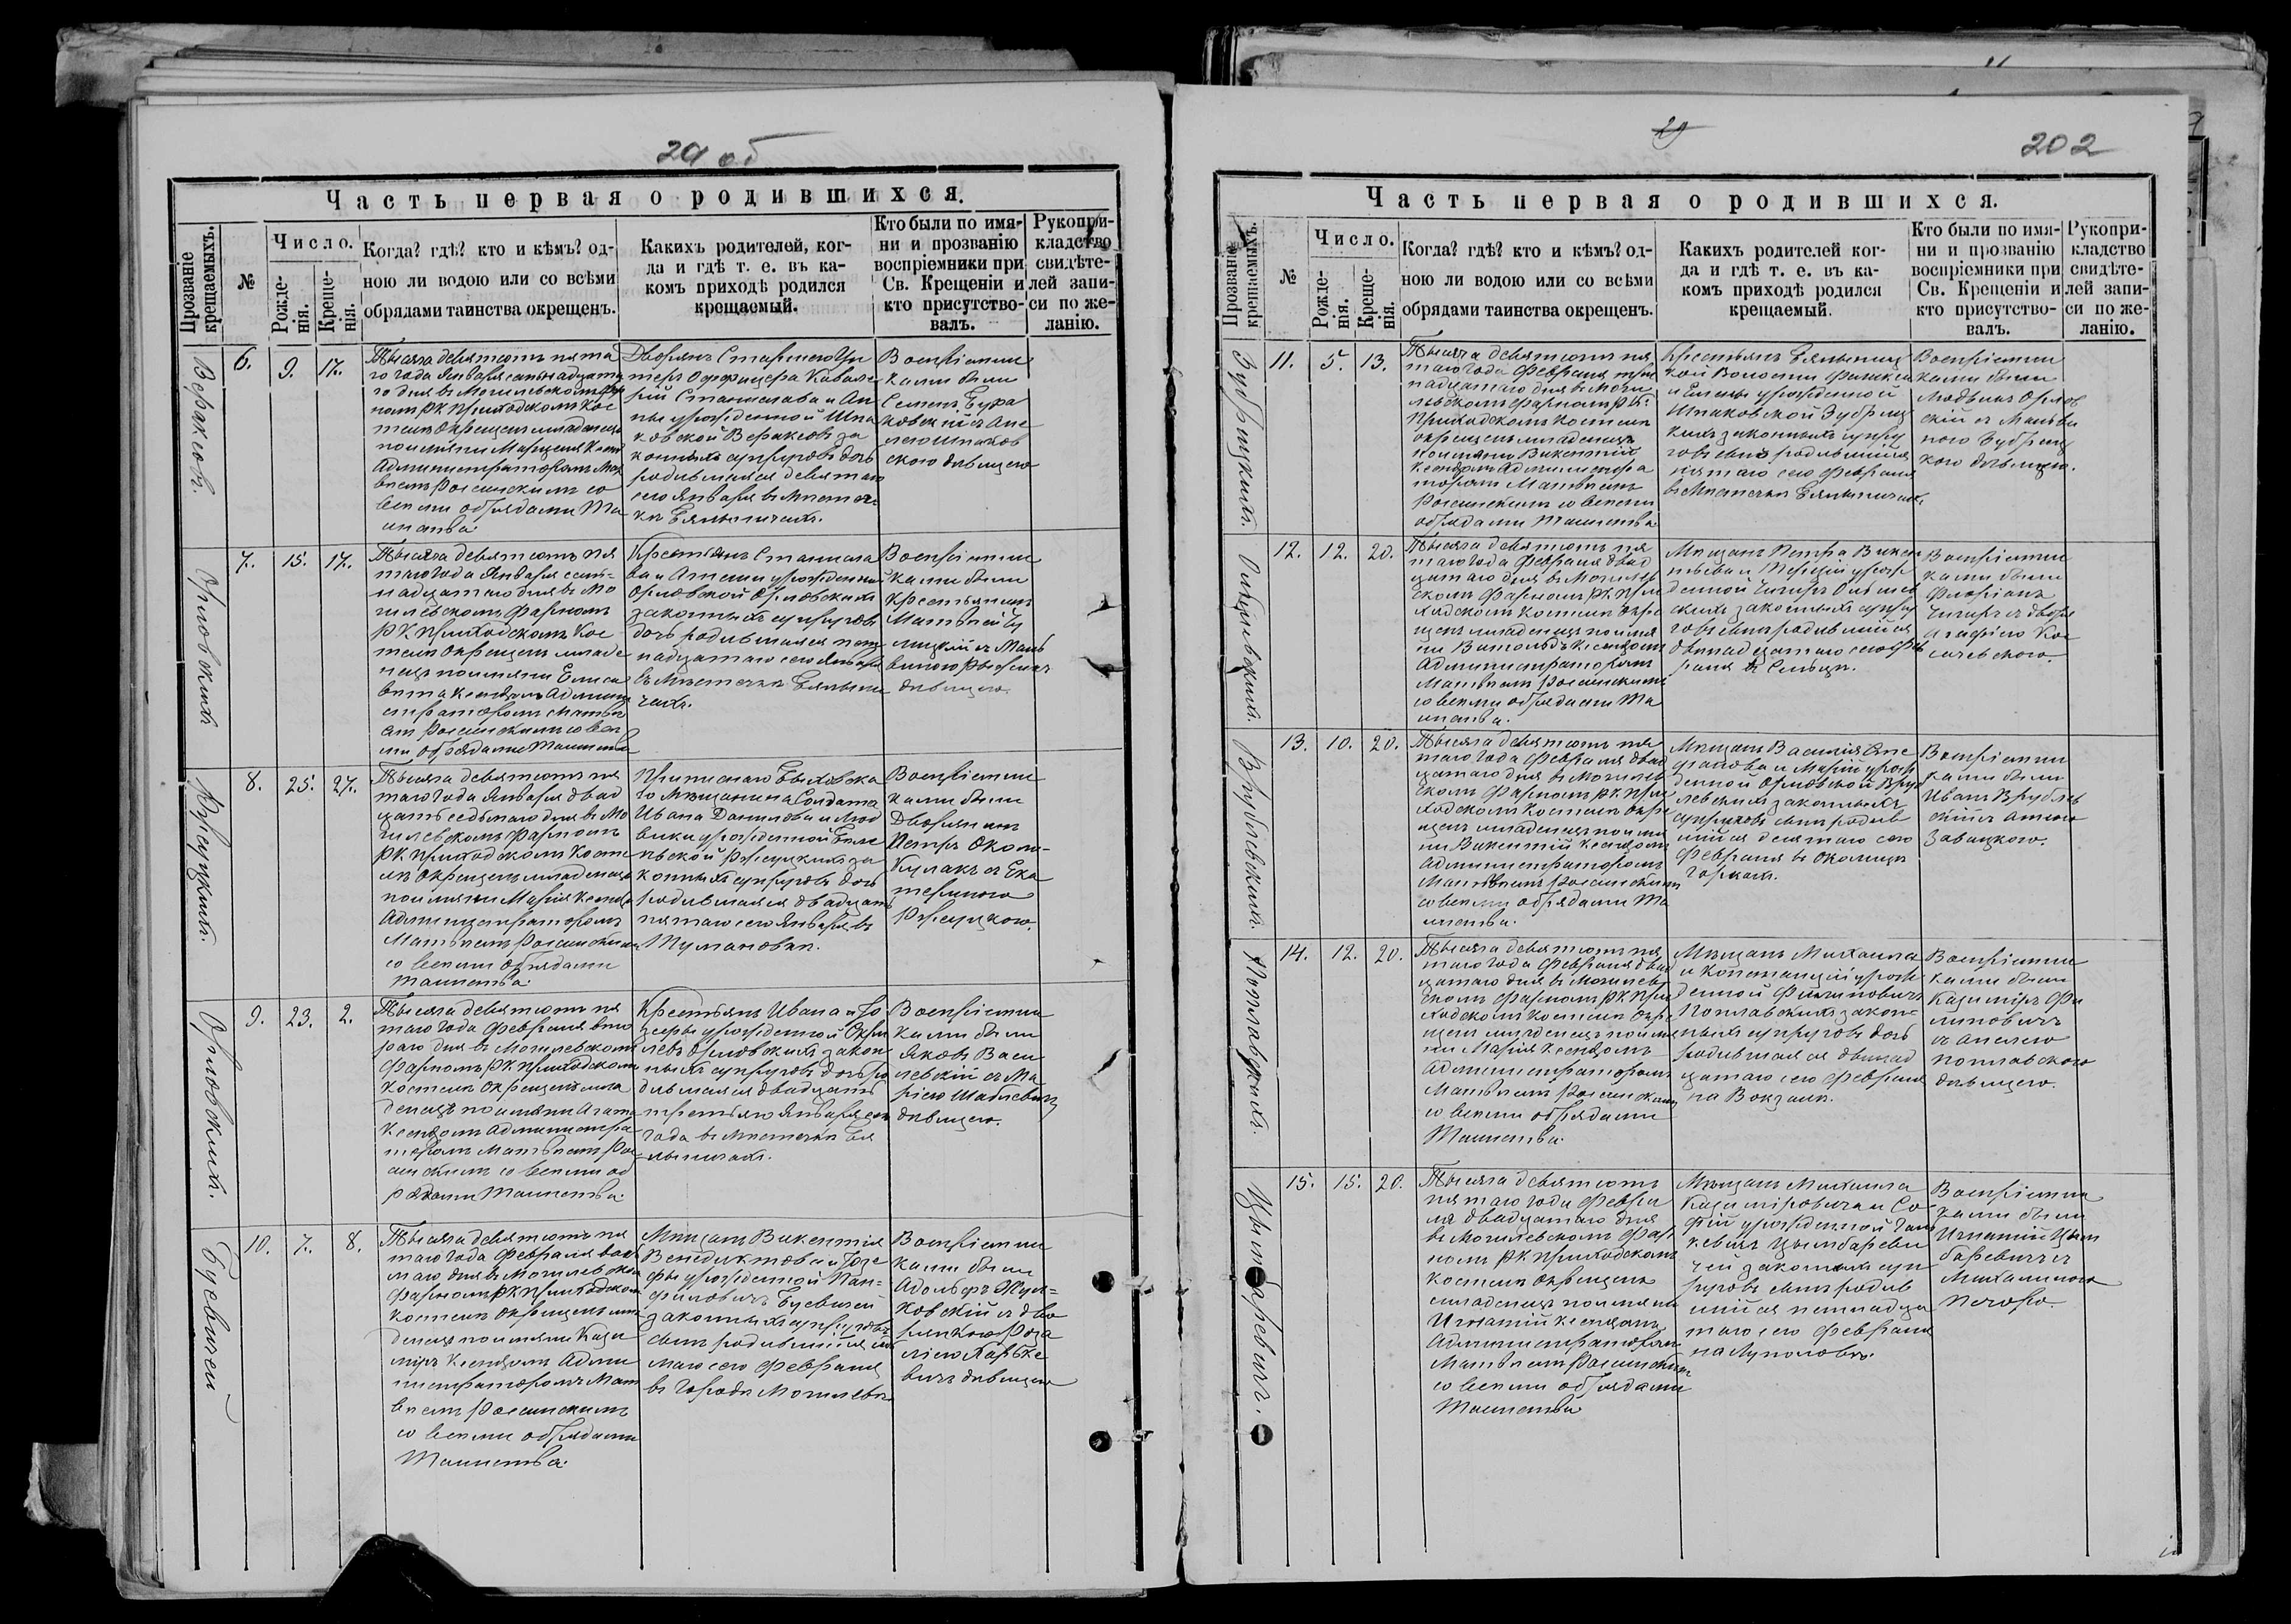 29 об
Часть первая о родившихся.
Прозваніе крещаемыхъ.
№
Число.
Рожде-
нія.
Креще-
нія.
Когда? гдѣ? кто и кѣмъ? од-
ною ли водою или со всѣми
обрядами таинства окрещенъ.
Какихъ родителей, ког-
да и гдѣ т. е. въ ка-
комъ приходѣ родился
крещаемый.
Кто были по имя-
ни и прозванію
воспріемники при
Св. Крещеніи и
кто присутство-
валъ.
Рукопри-
кладство
свидѣте-
лей запи-
си по же-
ланію.
6.
9.
17.
Тысяча девятьсотъ пята
го года Января семьнадцата
го дня въ Могилевскомъ
номъ РК Приходскомъ Кос
телѣ окрещенъ младенецъ
Администраторомъ Мат
вѣемъ со
всѣми обрядами Та
инства.
Дворянъ Старшего Ун
теръ Оффицера
Станислава и Ан
ны урожденной Шпа
ковской Вераксовъ за
конныхъ супруговъ дочь
родившаяся девятаго
сего Января въ Мѣстеч
кѣ Бялыничахъ.
Воспріемни
ками были
Семенъ
съ Ане
лею Шпаков
скою дѣвицею
Орловскихъ
7.
15.
17.
Тысяча девятьсотъ пя
таго года Января семь-
надцатаго дня въ Мо
гилевскомъ Фарномъ
РК Приходскомъ Кос
телѣ окрещенъ младе
нецъ по имяни Елиса
вета Ксендзомъ Админи
страторомъ Матвѣ
емъ со всѣ
ми обрядами Таинства
Крестьянъ Станисла
ва и урожденной
Орловской Орловскихъ
законныхъ супруговъ
дочь родившаяся пят
надцатаго сего Января
въ Мѣстечкѣ Бялыни
чахъ.
Воспріемни
ками были
Крестьянинъ
Матвѣй
съ Маль
виною
дѣвицею.
8.
25.
27.
Тысяча девятьсотъ пя
таго года Января двад
цать седьмаго дня въ Мо
гилевскомъ Фарномъ
РК Приходскомъ Косте
лѣ окрещенъ младенецъ
по имяни Марія Ксендзомъ
Администраторомъ
Матвѣемъ
со всѣми обрядами
Таинства.
Приписнаго Быховска
го Мѣщанина Солдата
Ивана Данилова и Люд
вики урожденной
за
конныхъ супруговъ дочь
родившаяся двадцать
пятаго сего Января въ
Воспріемни
ками были
Дворянинъ
Петръ Около-
Кулакъ съ Ека
териною
Орловскихъ.
9.
23.
2.
Тысяча девятьсотъ пя
таго года Февраля вто
раго дня въ Могилевскомъ
Фарномъ РК Приходскомъ
Костелѣ окрещенъ мла
денецъ по имяни Агата
Ксендзомъ Администра
торомъ Матвѣемъ
со всѣми об
рядами Таинства.
Крестьянъ Ивана и Іо
зефы урожденной
Орловскихъ закон
ныхъ супруговъ дочь ро
дившаяся двадцать
третьяго Января сего
года въ Мѣстечкѣ Бя
лыничахъ.
Воспріемни
ками были
Яковъ Васи
левскій съ Ма
ріею
дѣвицею.
Буевичей
10.
7.
8.
Тысяча девятьсотъ пя
таго года Февраля вось
маго дня въ Могилевскомъ
Фарномъ РК Приходскомъ
Костелѣ окрещенъ мла
денецъ по имяни Кази
миръ Ксендзомъ Адми
нистраторомъ Мат
вѣемъ
со всѣми обрядами
Таинства.
Мѣщанъ Викентія
Венедиктова и Іозе
фы урожденной Пан-
филовичъ Буевичей
законныхъ супруговъ
сынъ родившійся седь
маго сего Февраля
въ Городѣ Могилевѣ
Воспріемни
ками были
Адольфъ Жу
ковскій съ дво
рянкою Роза
ліею Харьке
вичъ дѣвицею
202
Часть первая о родившихся.
Прозваніе крещаемыхъ.
№
Число.
Рожде-
нія.
Креще-
нія.
Когда? гдѣ? кто и кѣмъ? од-
ною ли водою или со всѣми
обрядами таинства окрещенъ.
Какихъ родителей ког-
да и гдѣ т. е. въ ка-
комъ приходѣ родился
крещаемый.
Кто были по имя-
ни и прозванію
воспріемники при
Св. Крещеніи и
кто присутство-
валъ.
Рукопри-
кладство
свидѣте-
лей запи-
си по же-
ланію.
Зубрицкихъ.
11.
5.
13.
Тысяча девятьсотъ пя
таго года Февраля три
надцатаго дня въ Моги
левскомъ Фарномъ РК.
Приходскомъ Костелѣ
окрещенъ младенецъ
по имяни Викентій
Ксендзомъ Администра
торомъ Матвѣемъ
со всѣми
обрядами Таинства.
Крестьянъ Бялыниц
кой Волости Феликса
и Елены урожденной
Шпаковской Зубриц
кихъ законныхъ супру
говъ сынъ родившійся
пятаго сего Февраля
въ Мѣстечкѣ Бялыничахъ.
Воспріемни
ками были
Людвикъ Орлов
скій съ Мальви
ною Зубриц
кою дѣвицею.
12.
12.
20.
Тысяча девятьсотъ пя
таго года Февраля двад
цатаго дня въ Могилев
скомъ Фарномъ РК При
ходскомъ Костелѣ окре
щенъ младенецъ по имя
ни Витольдъ Ксендзомъ
Администраторомъ
Матвѣемъ
со всѣми обрядами Та
инства.
Мѣщанъ Петра Викен
тьева и урож
денной
скихъ законныхъ супру
говъ сынъ родившійся
двѣнадцатаго сего Фев
раля въ
Воспріемни
ками были
Флоріанъ
Врублевскихъ.
13.
10.
20.
Тысяча девятьсотъ пя
таго года Февраля двад
цатаго дня въ Могилев
скомъ Фарномъ РК При
ходскомъ Костелѣ окре
щенъ младенецъ по имя
ни Викентій Ксендзомъ
Администраторомъ
Матвѣемъ
со всѣми обрядами Та
инства.
Мѣщанъ Василія Сте
фанова и Маріи урож
денной Орловской Вруб
левскихъ законныхъ
супруговъ сынъ родив
шійся десятаго сего
Февраля въ Околицѣ
Горкахъ.
Воспріемни
ками были
Иванъ Врублев
скій съ
Завацкою.
Поплавскихъ.
14.
12.
20.
Тысяча девятьсотъ пя
таго года Февраля двад
цатаго дня въ Могилев
скомъ Фарномъ РК При
ходскомъ Костелѣ окре
щенъ младенецъ по имя
ни Марія Ксендзомъ
Администраторомъ
Матвѣемъ
со всѣми обрядами
Таинства.
Мѣщанъ Михаила
и Констанціи урож
денной Филиповичъ
Поплавскихъ закон-
ныхъ супруговъ дочь
родившаяся двѣнад
цатаго сего Февраля
на Вокзалѣ.
Воспріемни
ками были
Казимиръ Фи
липовичъ
съ Анелею
Поплавскою
дѣвицею.
Цымбаревичъ.
15.
15.
20.
Тысяча девятьсотъ
пятаго года Февра
ля двадцатаго дня
въ Могилевскомъ Фар
номъ РК Приходскомъ
Костелѣ окрещенъ
младенецъ по имяни
Игнатій Ксендзомъ
Администраторомъ
Матвѣемъ
со всѣми обрядами
Таинства
Мѣщанъ Михаила
Казиміровича и Со
фіи урожденной
Цымбареви
чей законныхъ суп
руговъ сынъ родив
шійся пятнадца
таго сего Февраля
на Луполовѣ.
Воспріемни
ками были
Игнатій Цым
баревичъ съ
Михалиною